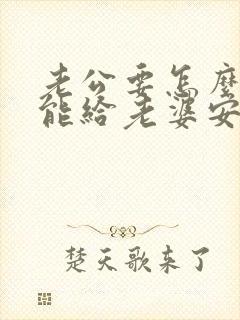 老公要怎麼
能給老婆安
楚天歌来了